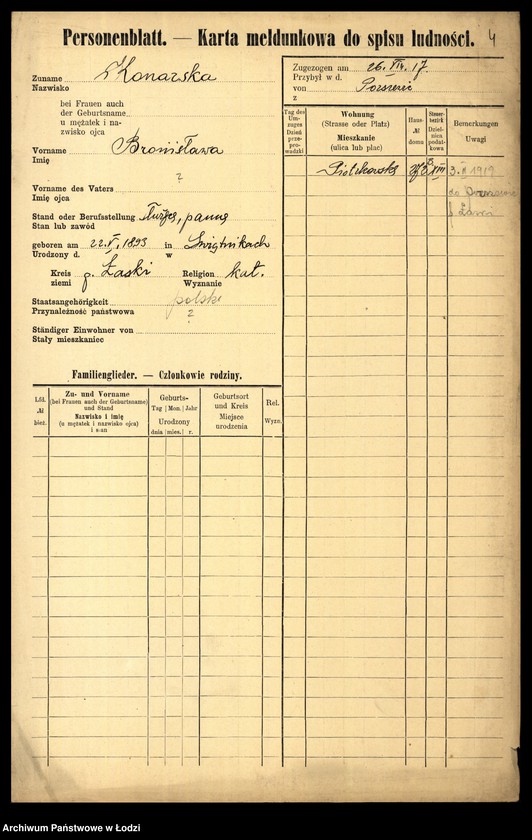 Personenblatt. — Karta meldunkowa do spisu ludności. 4
Zuname Konarska
Nazwisko
bei Frauen auch
der Geburtsname
u mężatek i na-
zwisko ojca
Vorname Bronisława
Imię
?
Vorname des Vaters
Imię ojca
Stand oder Berufsstellung służąca, panna
Stan lub zawód
geboren am 22.V.1893 in
Urodzony d. w
Kreis p. Łaski Religion kat.
ziemi Wyznanie
Staatsangehörigkeit polska
Przynależność państwowa ?
Ständiger Einwohner von
Stały mieszkaniec
Zugezogen am 26.VII.17.
Przybył w d.
von
z
Tag des
Um-
zuges
Dzień
prze-
prowadzki
Wohnung
(Strasse oder Platz)
Mieszkanie
(ulica lub plac)
Haus-
№
domu
Steuer-
bezirk
Dziel-
nica
podat-
kowa
Bemerkungen
Uwagi
Piotrkowska XIII 3.X 1919
do
p Łaski
Familienglieder. — Członkowie rodziny.
Lfd.
№
bież.
Zu- und Vorname
(bei Frauen auch der Geburtsname)
und Stand
Nazwisko i imię
(u mężatek i nazwisko ojca)
i stan
Geburts-
Tag Mon. Jahr
Urodzony
dnia mies. r.
Geburtsort
und Kreis
Miejsce
urodzenia
Rel.
Wyzn.
Archiwum Państwowe w Łodzi